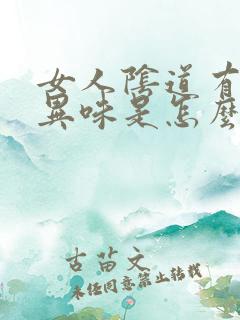 女人陰道有
異味是怎麼
古苗文
未经同意禁止转载